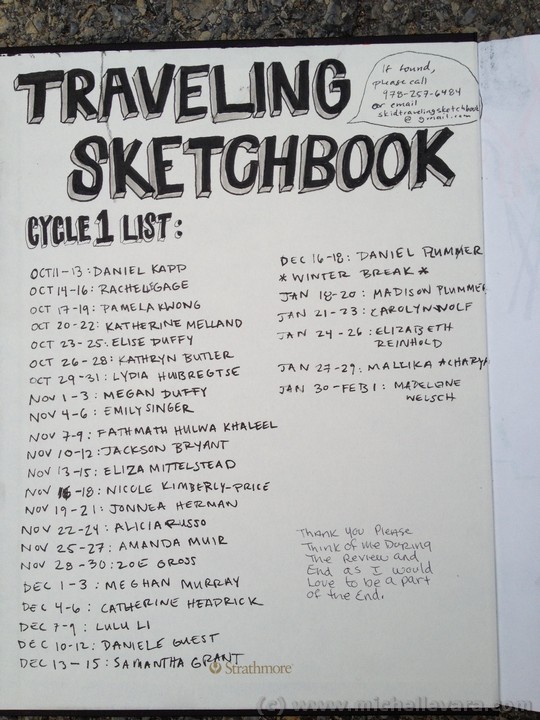 TRAVELING
SKETCHBOOK
If found,
please call
978-257-6484
or email
skidtravelingsketchbook
@gmail.com
CYCLE 1 LIST:
OCT 11-13: DANIEL KAPP
OCT 14-16: RACHEL GAGE
OCT 17-19: PAMELA KWONG
OCT 20-22: KATHERINE MELLAND
OCT 23-25: ELISE DUFFY
OCT 26-28: KATHRYN BUTLER
OCT 29-31: LYDIA HUBREGTSE
NOV 1-3: MEGAN DUFFY
NOV 4-6: EMILY SINGER
NOV 7-9: FATHMATH HULWA KHALEEL
NOV 10-12: JACKSON BRYANT
NOV 13-15: ELIZA MITTELSTEAD
NOV 16-18: NICOLE KIMBERLY-PRICE
NOV 19-21: JONNEA HERMAN
NOV 22-24: ALICIA RUSSO
NOV 25-27: AMANDA MUIR
NOV 28-30: ZOE GROSS
DEC 1-3: MEGHAN MURRAY
DEC 4-6: CATHERINE HEADRICK
DEC 7-9: LULU LI
DEC 10-12: DANIELE GUEST
DEC 13-15: SAMANTHA GRANT
DEC 16-18: DANIEL PLUMMER
* WINTER BREAK *
JAN 18-20: MADISON PLUMMER
JAN 21-23: CAROLYN WOLF
JAN 24-26: ELIZABETH
REINHOLD
JAN 27-29: MALLIKA ACHARYA
JAN 30-FEB 1: MADELEINE
WELSCH
Thank you Please
Think of me During
The Review and
End as I would
Love to be a part
of the End.
Strathmore
(c) www.michallavara.com